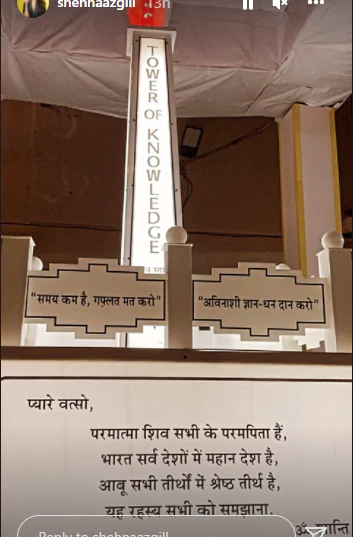 shehnaazgill 13h
TOWER OF KNOWLEDGE
"समय कम है, गफ़्लत मत करो"
"अविनाशी ज्ञान-धन दान करो"
प्यारे वत्सो,
परमात्मा शिव सभी के परमपिता हैं,
भारत सर्व देशों में महान देश है,
आबू सभी तीर्थों में श्रेष्ठ तीर्थ है,
यह रहस्य सभी को समझाना.
Reply to shehnaazgill
ॐ शान्ति